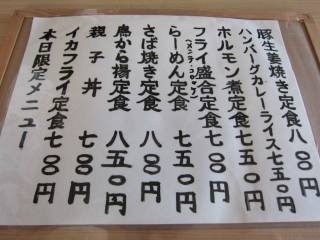 豚生姜焼き定食八00円
ハンバーグカレーライス七五0円
ホルモン煮定食七00円
フライ盛合定食七00円
(メンチ・コロッケ)
らーめん定食七五0円
さば焼き定食八00円
鳥から揚定食八五0円
親子丼七00円
イカフライ定食七00円
本日限定メニュー